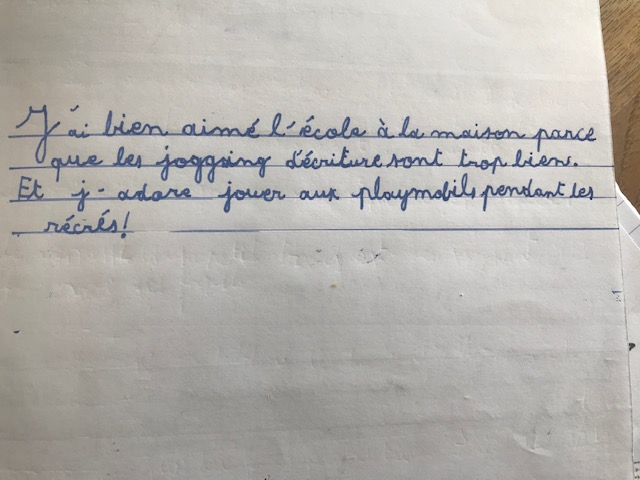 J'ai bien aimé l'école à la maison parce
que les joggging d'écriture sont trop bien.
Et j'adore jouer aux playmobils pendant les
récrés!